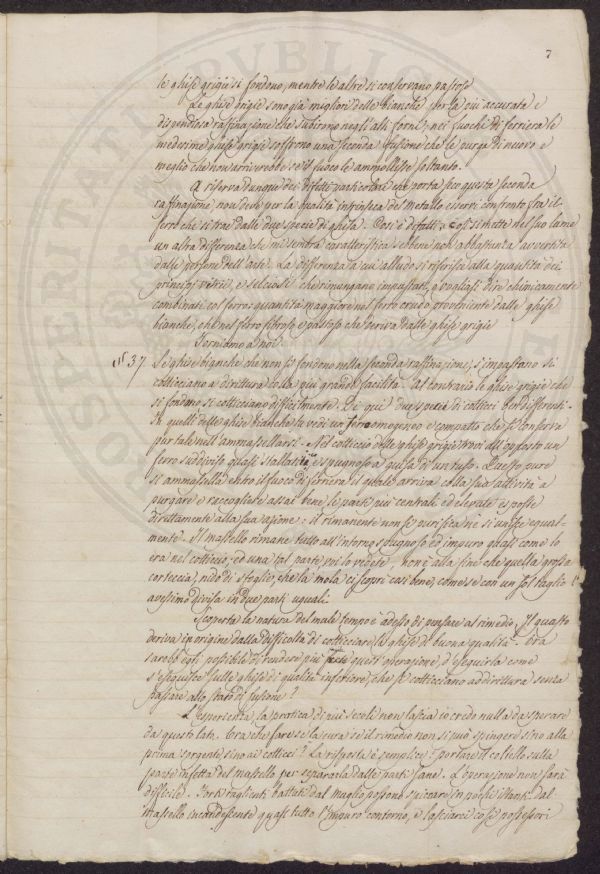 7
le ghise grigie si fondono, mentre le altre si conservano pastose
Le ghise grigie sono già migliori delle bianche per la più accurata e
dispendiosa raffinazione che subirono negli alti forni; nei fuochi di ferriera le
medesime ghise grigie soffrono una seconda fusione che le purga di nuovo e
meglio che non arriverebbe se il fuoco le ammollisse soltanto.
A riserva dunque dei difetti particolare che porta seco questa seconda
raffinazione non deve per la qualità intrinseca del metallo esservi confronto fra il
ferro che si trae dalle due specie di ghisa. Così è difatti, e così si mette nel suo lume
un altra differenza che mi sembra caratteristica sebbene non abbastanza avvertita
dalle persone dell'arte. La differenza a cui alludo si riferisce alla quantità dei
principj vetrei, e selciosi che rimangono impastati, o vogliasi dire chimicamente
combinati col ferro: quantità maggiore nel ferro crudo proveniente dalle ghise
bianche, che nel ferro fibroso e pastoso che deriva dalle ghise grigie
Torniamo a noi.
N° 37. Le ghise bianche che non si fondono nella seconda raffinazione, s'impastano si
cotticciano a dirittura colla più grande facilità. Al contrario le ghise grigie che
si fondono si cotticciano difficilmente. Di qui due specie di cotticci ben differenti.
In quelli delle ghise bianche tu vedi un ferro omogeneo e compatto che si conserva
pur tale nell'ammassellarsi. Nel cotticcio delle ghise grigie trovi all'opposto un
ferro suddiviso quasi stallatico, e spugnoso a guisa di un tufo. Questo pure
si ammassella entro il fuoco di ferriera il quale arriva colla sua attività a
purgare e raccogliere assai bene le parti più centrali ed elevate esposte
direttamente alla sua azione: il rimanente non si purifica nè si unisce egual-
mente. Il mastello rimane tutto all'intorno spugnoso ed impuro quasi come lo
era nel cotticcio, ed una tal parte voi lo vedete non è alla fine che quella grossa
corteccia, nido di sfoglie, che la mola ci scoprì così bene, come se con un sol taglio l'
avessimo divisa in due parti uguali.
Scoperta la natura del male tempo è adesso di pensare al rimedio. Il guasto
deriva in origine dalla difficoltà di cotticciare le ghise di buona qualità. Ora
sarebb'egli possibile di rendere più facile quest'operazione, d'eseguirla come
s'eseguisce sulle ghise di qualità inferiore, che si cotticciano addirittura senza
passare allo stato di fusione?
L'esperienza, la pratica di più secoli non lascia io credo nulla da sperare
da questo lato. Ora che fare se la cura se il rimedio non si può spingere sino alla
prima sorgente sino ai cotticci? La risposta è semplice: portare il coltello sulla
parte infetta del mastello per separarla dalle parti sane. L'operazione non sarà
difficile. Forti taglienti battuti dal maglio possono spiccare in pochi istanti dal
mastello incandescente quasi tutto l'impuro contorno, e lasciarci così possessori